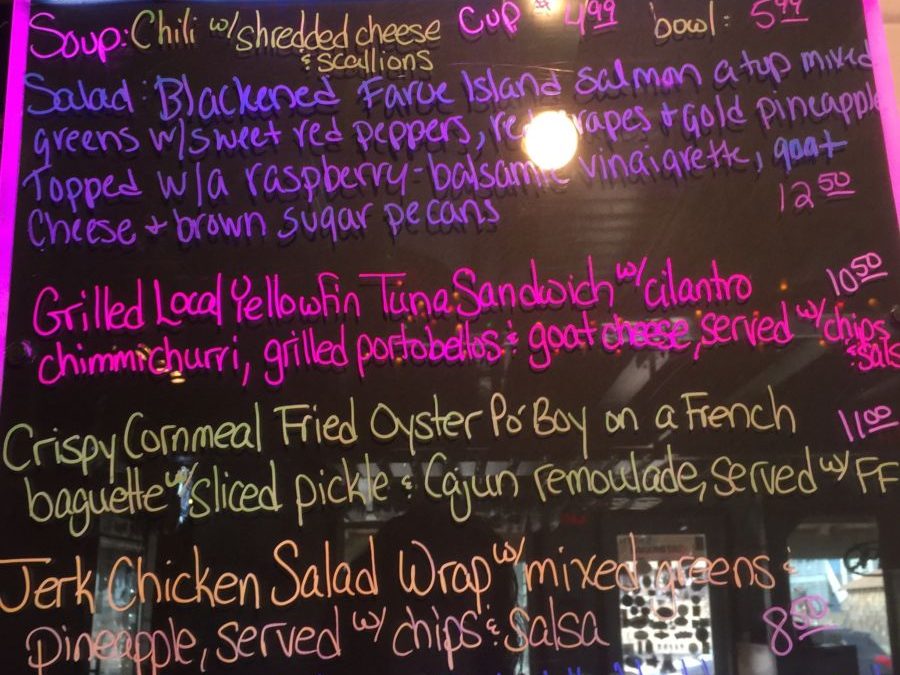 Soup: Chili w/ shredded cheese Cup 4.99 bowl: 5.99
& scallions
Salad: Blackened Faroe Island salmon atup mixed
greens w/ sweet red peppers, red grapes + gold pineapple
Topped w/ a raspberry-balsamic vinaigrette, goat
Cheese + brown sugar pecans 12.50
Grilled Local Yellowfin Tuna Sandwich w/ cilantro 10.50
chimmichurri, grilled portobellos & goat cheese, served w/ chips
& sals
Crispy Cornmeal Fried Oyster Po' Boy on a French 11.00
baguette w/ sliced pickle & Cajun remoulade, served w/ FF
Jerk Chicken Salad Wrap w/ mixed greens &
pineapple, served w/ chips & salsa 8.50